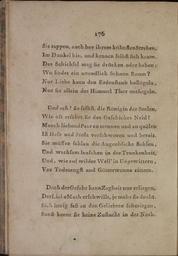 176
Sie tappen, auch bey ihrem kühnsten Streben,
Im Dunkel hin, und kennen selbst sich kaum.
Das Schicksal mag sie drücken oder heben;
Wo findet ein unendlich Sehnen Raum?
Nur Liebe kann den Erdenstaub beflügeln,
Nur sie allein der Himmel Thor entsiegeln.
Und ach! sie selbst, die Königin der Seelen,
Wie oft erfährt sie des Geschickes Neid!
Manch liebend Paar zu trennen und zu quälen
Ist Haß und Stolz verschworen und bereit.
Sie müssen schlau die Augenblicke stehlen,
Und wachsam lauschen in der Trunkenheit,
Und, wie auf wilder Well' in Ungewittern,
Vor Todesangst und Götterwonne zittern.
Doch der Gefahr kann Zagheit nur erliegen,
Der Liebe Muth erschwillt, je mehr sie droht.
Sich innig fest an den Geliebten schmiegen,
Sonst kennt sie keine Zuflucht in der Noth.